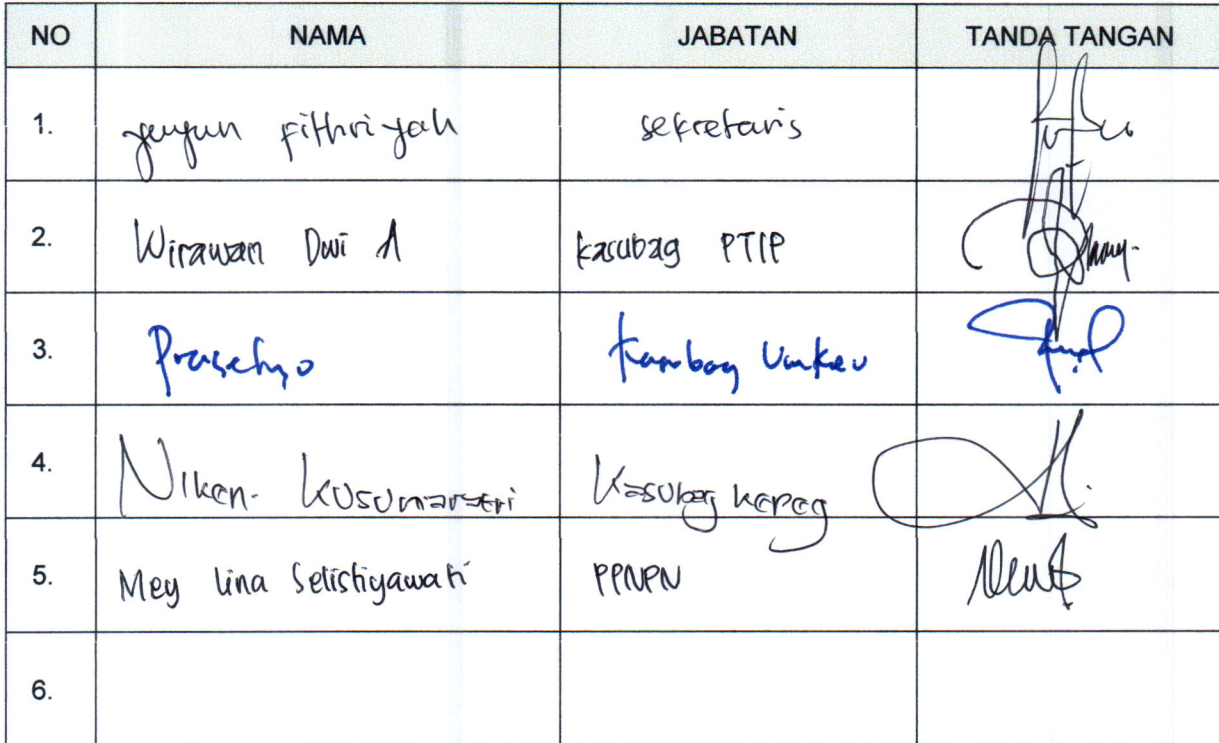 NO NAMA JABATAN TANDA TANGAN
1. yuyun fithriyah sekretaris
2. Wirawan Dwi A kasubag PTIP
3. Prasetyo kasubbag Umkeu
4. Niken Kusumaratri Kasubag kepeg
5. Mey Lina Selistiyawati PPNPN
6.